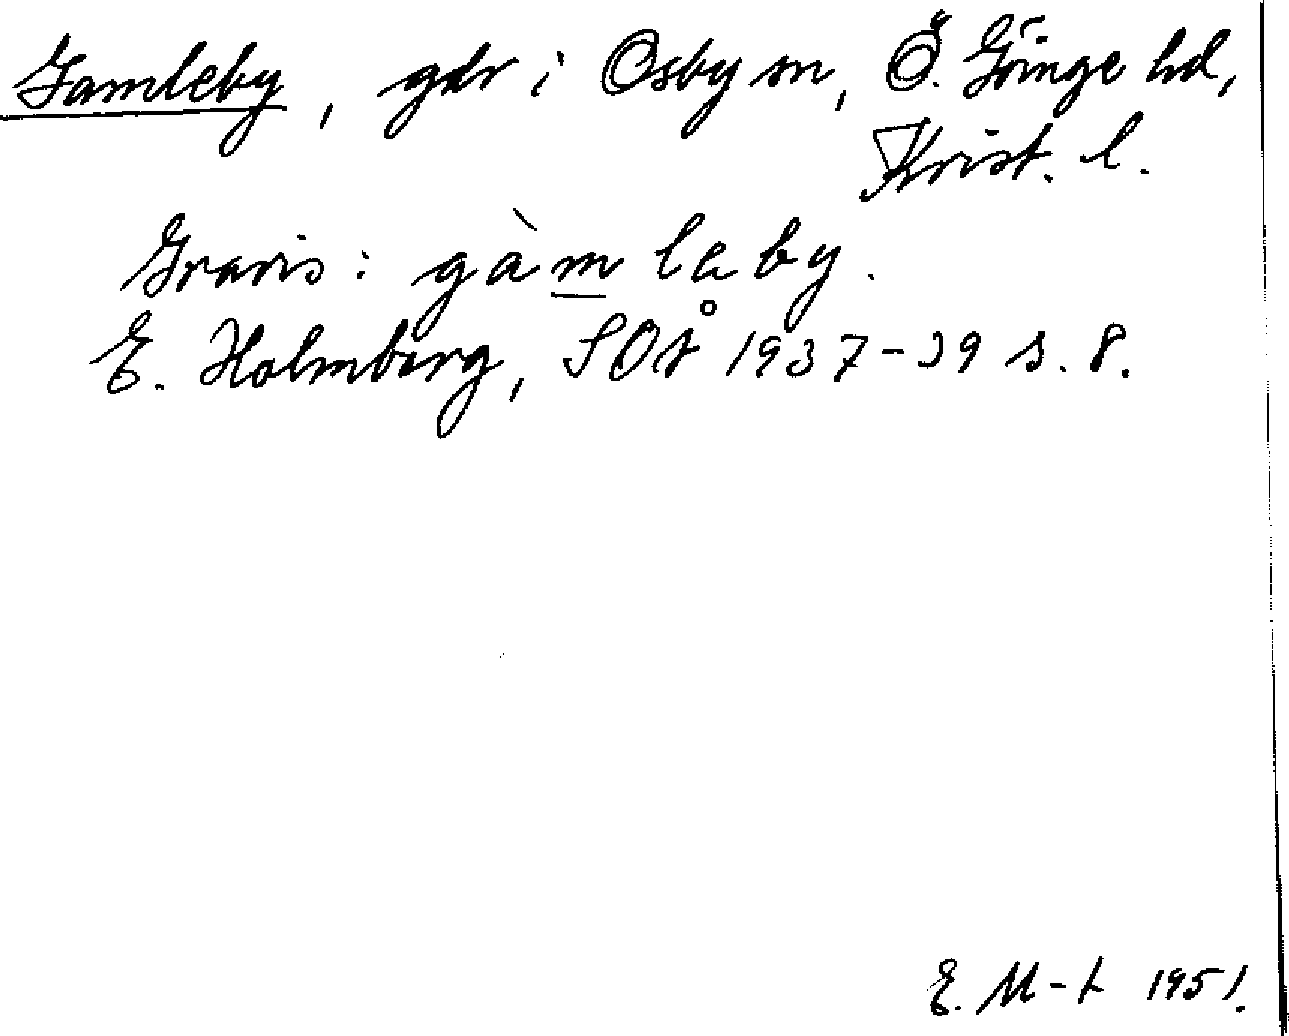 Gamleby, gdr i Osby sn, Ö. Göinge hd,
Krist. l.
Gravis: gàm̲ lḁ by.
E. Holmberg, SOÅ 1937-39 s. 8.
E. M-t 1951.